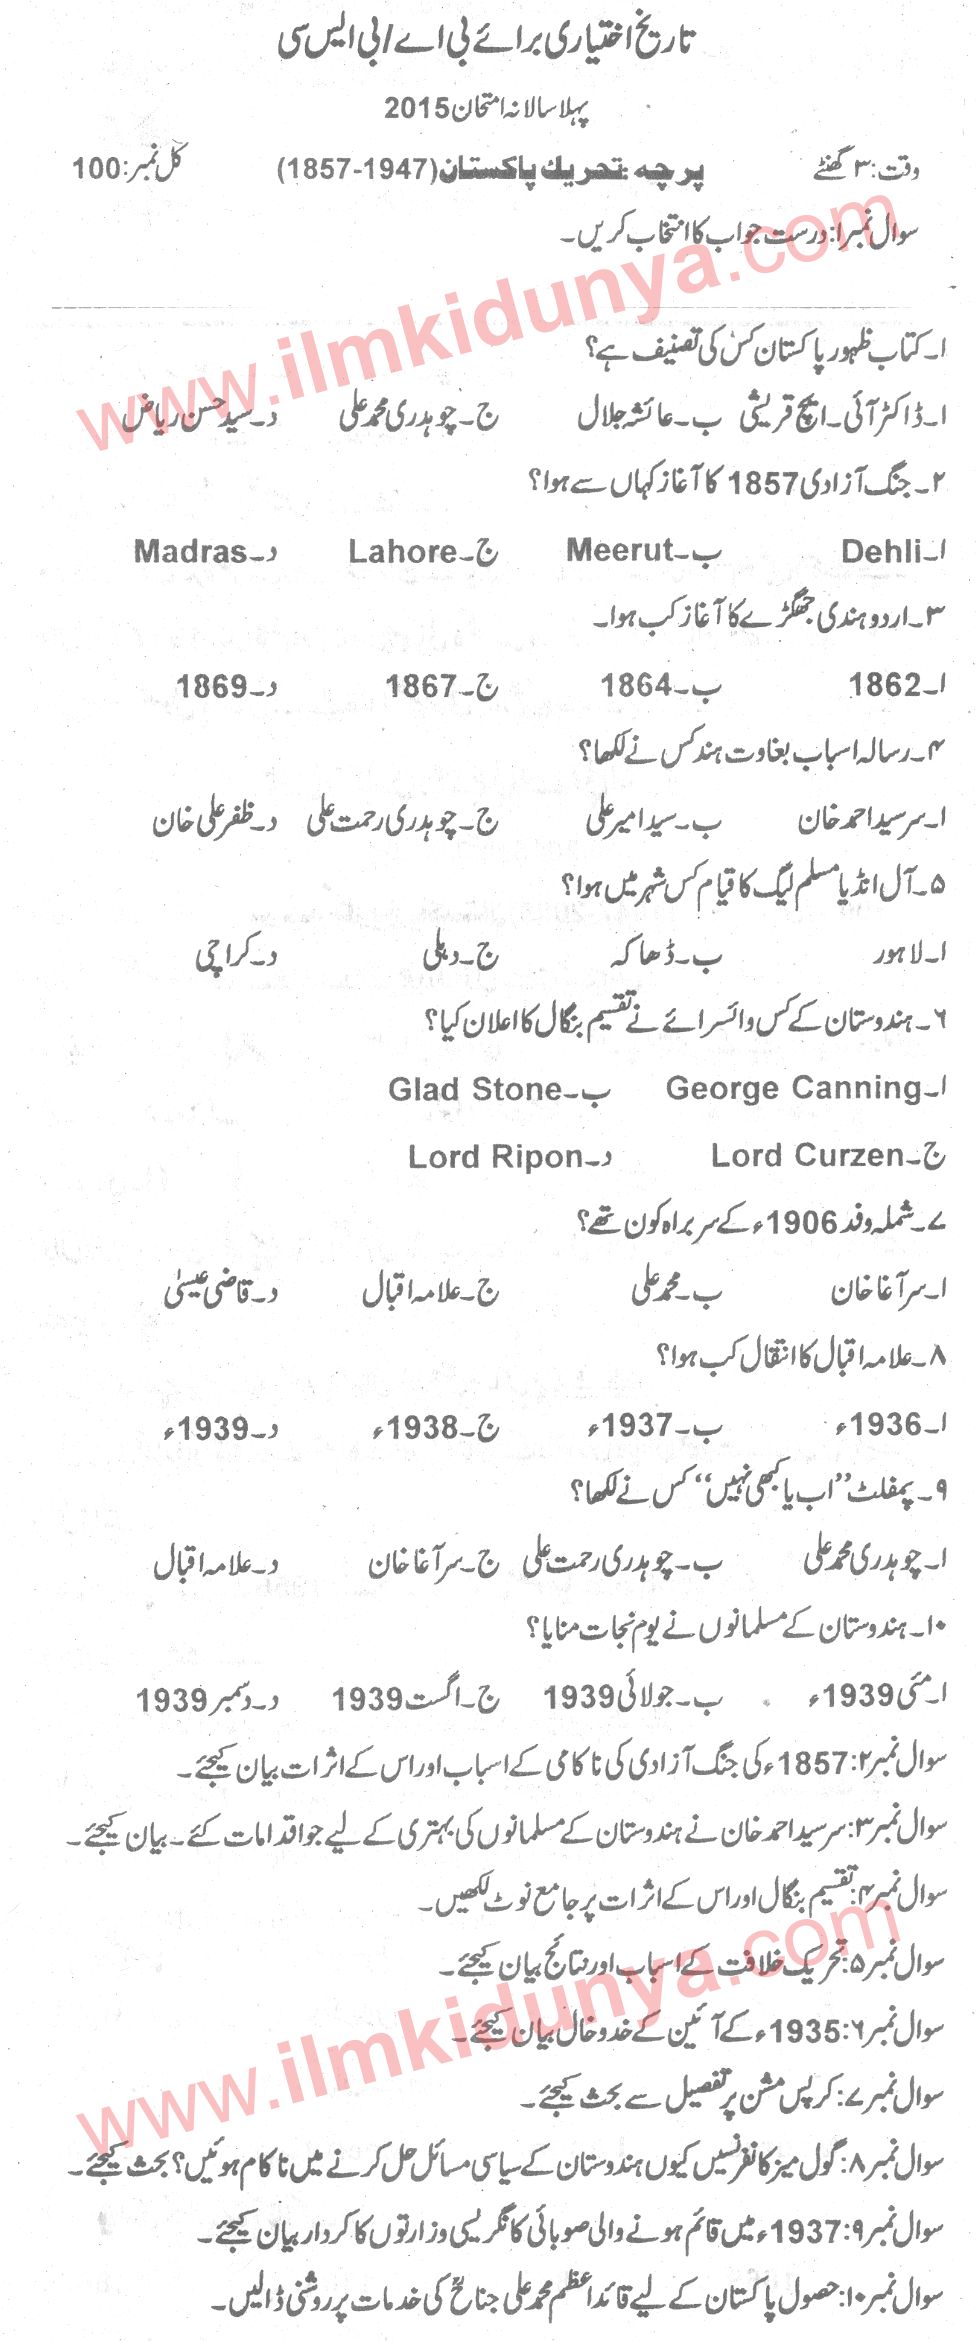 تاریخ اختیاری برائے بی اے/بی ایس سی
پہلا سالانہ امتحان 2015
وقت: ۳ گھنٹے پرچہ: تحریک پاکستان (1857-1947) کل نمبر: 100
سوال نمبر ۱: درست جواب کا انتخاب کریں۔
www.ilmkidunya.com
۱۔ کتاب ظہور پاکستان کس کی تصنیف ہے؟
ا۔ ڈاکٹر آئی۔ ایچ قریشی ب۔ عائشہ جلال ج۔ چوہدری محمد علی د۔ سید حسن ریاض
۲۔ جنگ آزادی 1857 کا آغاز کہاں سے ہوا؟
ا۔ Dehli ب۔ Meerut ج۔ Lahore د۔ Madras
۳۔ اردو ہندی جھگڑے کا آغاز کب ہوا۔
ا۔ 1862 ب۔ 1864 ج۔ 1867 د۔ 1869
۴۔ رسالہ اسباب بغاوت ہند کس نے لکھا؟
ا۔ سرسید احمد خان ب۔ سید امیر علی ج۔ چوہدری رحمت علی د۔ ظفر علی خان
۵۔ آل انڈیا مسلم لیگ کا قیام کس شہر میں ہوا؟
ا۔ لاہور ب۔ ڈھاکہ ج۔ دہلی د۔ کراچی
۶۔ ہندوستان کے کس وائسرائے نے تقسیم بنگال کا اعلان کیا؟
ا۔ George Canning ب۔ Glad Stone
ج۔ Lord Curzen د۔ Lord Ripon
۷۔ شملہ وفد 1906ء کے سربراہ کون تھے؟
ا۔ سر آغا خان ب۔ محمد علی ج۔ علامہ اقبال د۔ قاضی عیسیٰ
۸۔ علامہ اقبال کا انتقال کب ہوا؟
ا۔ 1936ء ب۔ 1937ء ج۔ 1938ء د۔ 1939ء
۹۔ پمفلٹ ”اب یا کبھی نہیں“ کس نے لکھا؟
ا۔ چوہدری محمد علی ب۔ چوہدری رحمت علی ج۔ سر آغا خان د۔ علامہ اقبال
۱۰۔ ہندوستان کے مسلمانوں نے یوم نجات منایا؟
ا۔ مئی 1939ء ب۔ جولائی 1939 ج۔ اگست 1939 د۔ دسمبر 1939
سوال نمبر ۲: 1857ء کی جنگ آزادی کی ناکامی کے اسباب اور اس کے اثرات بیان کیجئے۔
سوال نمبر ۳: سرسید احمد خان نے ہندوستان کے مسلمانوں کی بہتری کے لیے جو اقدامات کئے۔ بیان کیجئے۔
سوال نمبر ۴: تقسیم بنگال اور اس کے اثرات پر جامع نوٹ لکھیں۔
سوال نمبر ۵: تحریک خلافت کے اسباب اور نتائج بیان کیجئے۔
سوال نمبر ۶: 1935ء کے آئین کے خدوخال بیان کیجئے۔
www.ilmkidunya.com
سوال نمبر ۷: کرپس مشن پر تفصیل سے بحث کیجئے۔
سوال نمبر ۸: گول میز کانفرنسیں کیوں ہندوستان کے سیاسی مسائل حل کرنے میں ناکام ہوئیں؟ بحث کیجئے۔
سوال نمبر ۹: 1937ء میں قائم ہونے والی صوبائی کانگریسی وزارتوں کا کردار بیان کیجئے۔
سوال نمبر ۱۰: حصول پاکستان کے لیے قائداعظم محمد علی جناحؒ کی خدمات پر روشنی ڈالیں۔